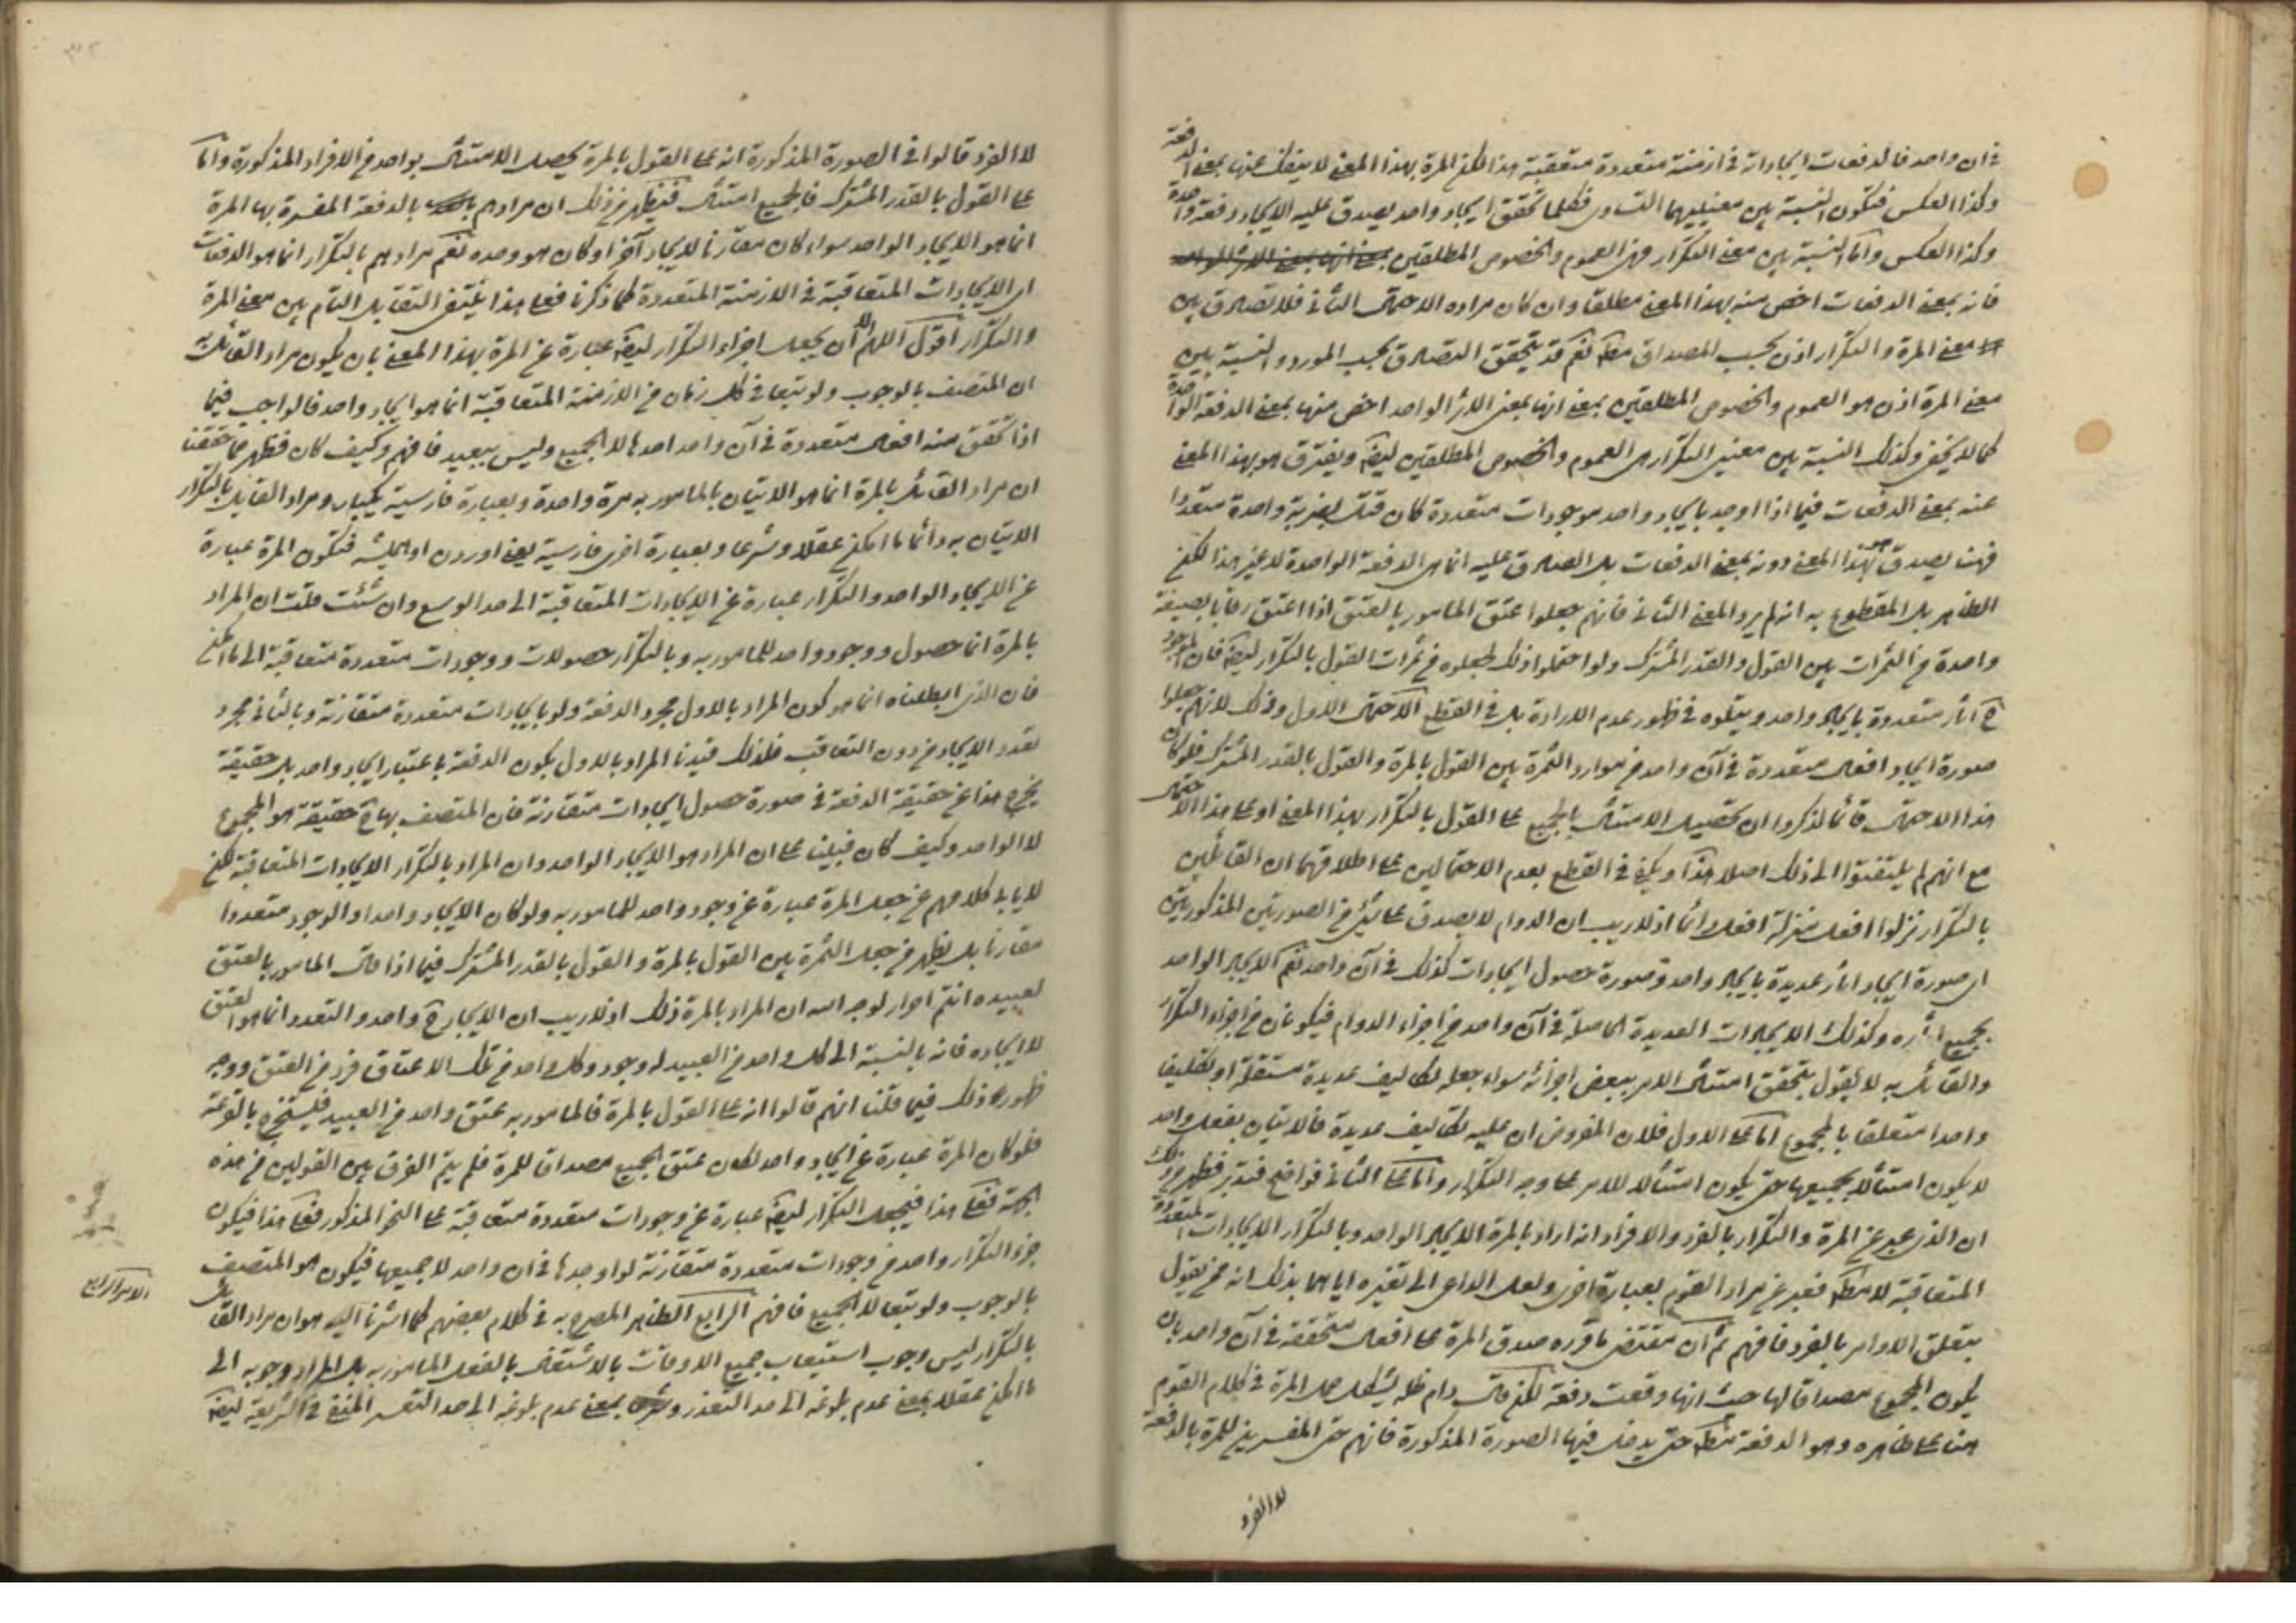 في ان واحد فالدفعات ايجاداته في ازمنة متعددة متعقبة هذا لكن المرة بهذا المعنى لا ينفك عنها بمعنى الدفعة
وكذا العكس فتكون النسبة بين معنييهما التساوى فكلما تحقق ايجاد واحد يصدق عليه الايجاد دفعة واحدة
وكذا العكس واما النسبة بين معنى التكرار فهى العموم والخصوص المطلقين
فانه بمعنى الدفعات اخص منه بهذا المعنى مطلقا وان كان مراده الاحتمال الثاني فلا تصادق بين
معنى المرة والتكرار اذن بحسب المصداق مط نعم قد يتحقق التصادق بحسب المورد والنسبة بين
معنى المرة اذن هو العموم والخصوص المطلقين بمعنى انها بمعنى الاثر الواحد اخص منها بمعنى الدفعة الواحدة
كما لا يخفى وكذلك النسبة بين معنيى التكرار هى العموم والخصوص المطلقين ايضا ويفترق هو بهذا المعنى
عنه بمعنى الدفعات فيما اذا اوجد بايجاد واحد موجودات متعددة كان قتل بضربة واحدة متعددا
فهنا يصدق هو بهذا المعنى دونه بمعنى الدفعات بل الصادق عليه انما هى الدفعة الواحدة لا غير هذا لكن
الظاهر بل المقطوع به انه لم يرد المعنى الثاني فانهم جعلوا عتق المامور بالعتق اذا اعتق رقابا بصيغة
واحدة من الثمرات بين القول والقدر المشترك ولو احتملوا ذلك لجعلوه من ثمرات القول بالتكرار ايضا فان الموجود
ح اثار متعددة بايجاد واحد ويتلوه في ظهور عدم الارادة بل في القطع الاحتمال الاول وذلك لانهم جعلوا
صورة ايجاد افعال متعددة في آن واحد من موارد الثمرة بين القول بالمرة والقول بالقدر المشترك فلو كان
هذا الاحتمال قائما لذكروا ان تحصيل الامتثال بالجميع على القول بالتكرار بهذا المعنى او على هذا الاحتمال
مع انهم لم يلتفتوا الى ذلك اصلا هذا ويكفي في القطع بعدم الاحتمالين على اطلاقهما ان القائلين
بالتكرار نزلوا افعل منزلة افعل دائما اذ لا ريب ان الدوام لا يصدق على شئ من الصورتين المذكورتين
اى صورة ايجاد اثار عديدة بايجاد واحد وصورة حصول ايجادات كذلك في آن واحد نعم الايجاد الواحد
بجميع اثاره وكذلك الايجادات العديدة الحاصلة في آن واحد من اجزاء الدوام فيكونان من اجزاء التكرار
والقائل به لا يقول بتحقق امتثال الامر ببعض اجزائه سواء جعله تكاليف عديدة مستقلة او تكليفا
واحدا متعلقا بالمجموع اما على الاول فلان المفروض ان عليه تكاليف عديدة فالاتيان بفعل واحد
لا يكون امتثالا لجميعها حتى يكون امتثالا للامر على وجه التكرار واما على الثاني فواضح فتدبر فظهر من ذلك
ان الذى عبر عن المرة والتكرار بالفرد والافراد انه اراد بالمرة الايجاد الواحد وبالتكرار الايجادات المتعددة
المتعاقبة لا مط فعبر عن مراد القوم بعبارة اخرى ولعل الداعى الى تغيره اياها بذلك انه ممن يقول
بتعلق الاوامر بالفرد فافهم ثم ان مقتضى ما قرره صدق المرة على افعال متحققة في آن واحد بان
يكون المجموع مصداقا لها حيث انها وقعت دفعة لكن قال دام ظله يشكل حمل المرة في كلام القوم
هنا على ظاهره وهو الدفعة مط حتى يدخل فيها الصورة المذكورة فانهم حتى المفسرين للمرة بالدفعة
لا الفرد
لا الفرد قالوا في الصورة المذكورة انه على القول بالمرة يحصل الامتثال بواحد من الافراد المذكورة واما
على القول بالقدر المشترك فالجميع امتثال فيظهر من ذلك ان مرادهم بالدفعة المفسرة بها المرة
انما هو الايجاد الواحد سواء كان مقارنا لايجاد آخر او كان هو وحده نعم مرادهم بالتكرار انما هو الدفعات
اى الايجادات المتعاقبة في الازمنة المتعددة كما ذكرنا فعلى هذا ينتفى التقابل التام بين معنى المرة
والتكرار اقول اللهم الا ان يجعل اجزاء التكرار ايضا عبارة عن المرة بهذا المعنى بان يكون مراد القائل به
ان المتصف بالوجوب ولو تبعا في كل زمان من الازمنة المتعاقبة انما هو ايجاد واحد فالواجب فيما
اذا تحقق منه افعال متعددة في آن واحد احدها لا الجميع وليس ببعيد فافهم وكيف كان فظهر مما حققنا
ان مراد القائل بالمرة انما هو الاتيان بالمامور به مرة واحدة وبعبارة فارسية يكبار ومراد القايل بالتكرار
الاتيان به دائما ما امكن عقلا وشرعا وبعبارة اخرى فارسية يعنى اوردن او هميشه فتكون المرة عبارة
عن الايجاد الواحد والتكرار عبارة عن الايجادات المتعاقبة الى حد الوسع وان شئت قلت ان المراد
بالمرة انما حصول ووجود واحد للمامور به وبالتكرار حصولات ووجودات متعددة متعاقبة الى ما امكن
فان الذى ابطلناه انما هو كون المراد بالاول مجرد الدفعة ولو بايجادات متعددة متقارنة وبالثاني مجرد
تعدد الايجاد من دون التعاقب فلذلك قيدنا المراد بالاول بكون الدفعة باعتبار ايجاد واحد بل حقيقة
يخرج هذا عن حقيقة الدفعة في صورة حصول ايجادات متقارنة فان المتصف بها ح حقيقة هو المجموع
لا الواحد وكيف كان فبنينا على ان المراد هو الايجاد الواحد وان المراد بالتكرار الايجادات المتعاقبة لكن
لا يابى كلامهم عن جعل المرة عبارة عن وجود واحد للمامور به ولو كان الايجاد واحدا والوجود متعددا
مقارنا بل يظهر من جعل الثمرة بين القول بالمرة والقول بالقدر المشترك فيما اذا قال المامور بالعتق
لعبيده انتم احرار لوجه الله ان المراد بالمرة ذلك اذ لا ريب ان الايجاد ح واحد والتعدد انما هو العتق
لا ايجاده فانه بالنسبة الى كل واحد من العبيد له وجود وكل واحد من تلك الاعتاق فرد من العتق ووجه
ظهور ذلك فيما قلنا انهم قالوا انه على القول بالمرة فالمامور به عتق واحد من العبيد فليستخرج بالقرعة
فلو كان المرة عبارة عن ايجاد واحد لكان عتق الجميع مصداقا للمرة فلم يتم الفرق بين القولين من هذه
الجهة فعلى هذا فيجعل التكرار ايضا عبارة عن وجودات متعددة متعاقبة على النحو المذكور فعلى هذا فيكون
جزء التكرار واحد من وجودات متعددة متقارنة لو اوجدها في ان واحد لا جميعها فيكون هو المتصف
بالوجوب ولو تبعا لا الجميع فافهم الرابع الظاهر المصرح به في كلام بعضهم كما اشرنا اليه هو ان مراد القائل
بالتكرار ليس وجوب استيعاب جميع الاوقات بالاشتغال بالفعل المامور به بل المراد وجوبه الى
ما امكن عقلا بمعنى عدم بلوغه الى حد التعذر وشرعا بمعنى عدم بلوغه الى حد التعسر المنفى في الشريعة ايضا
الامر الرابع